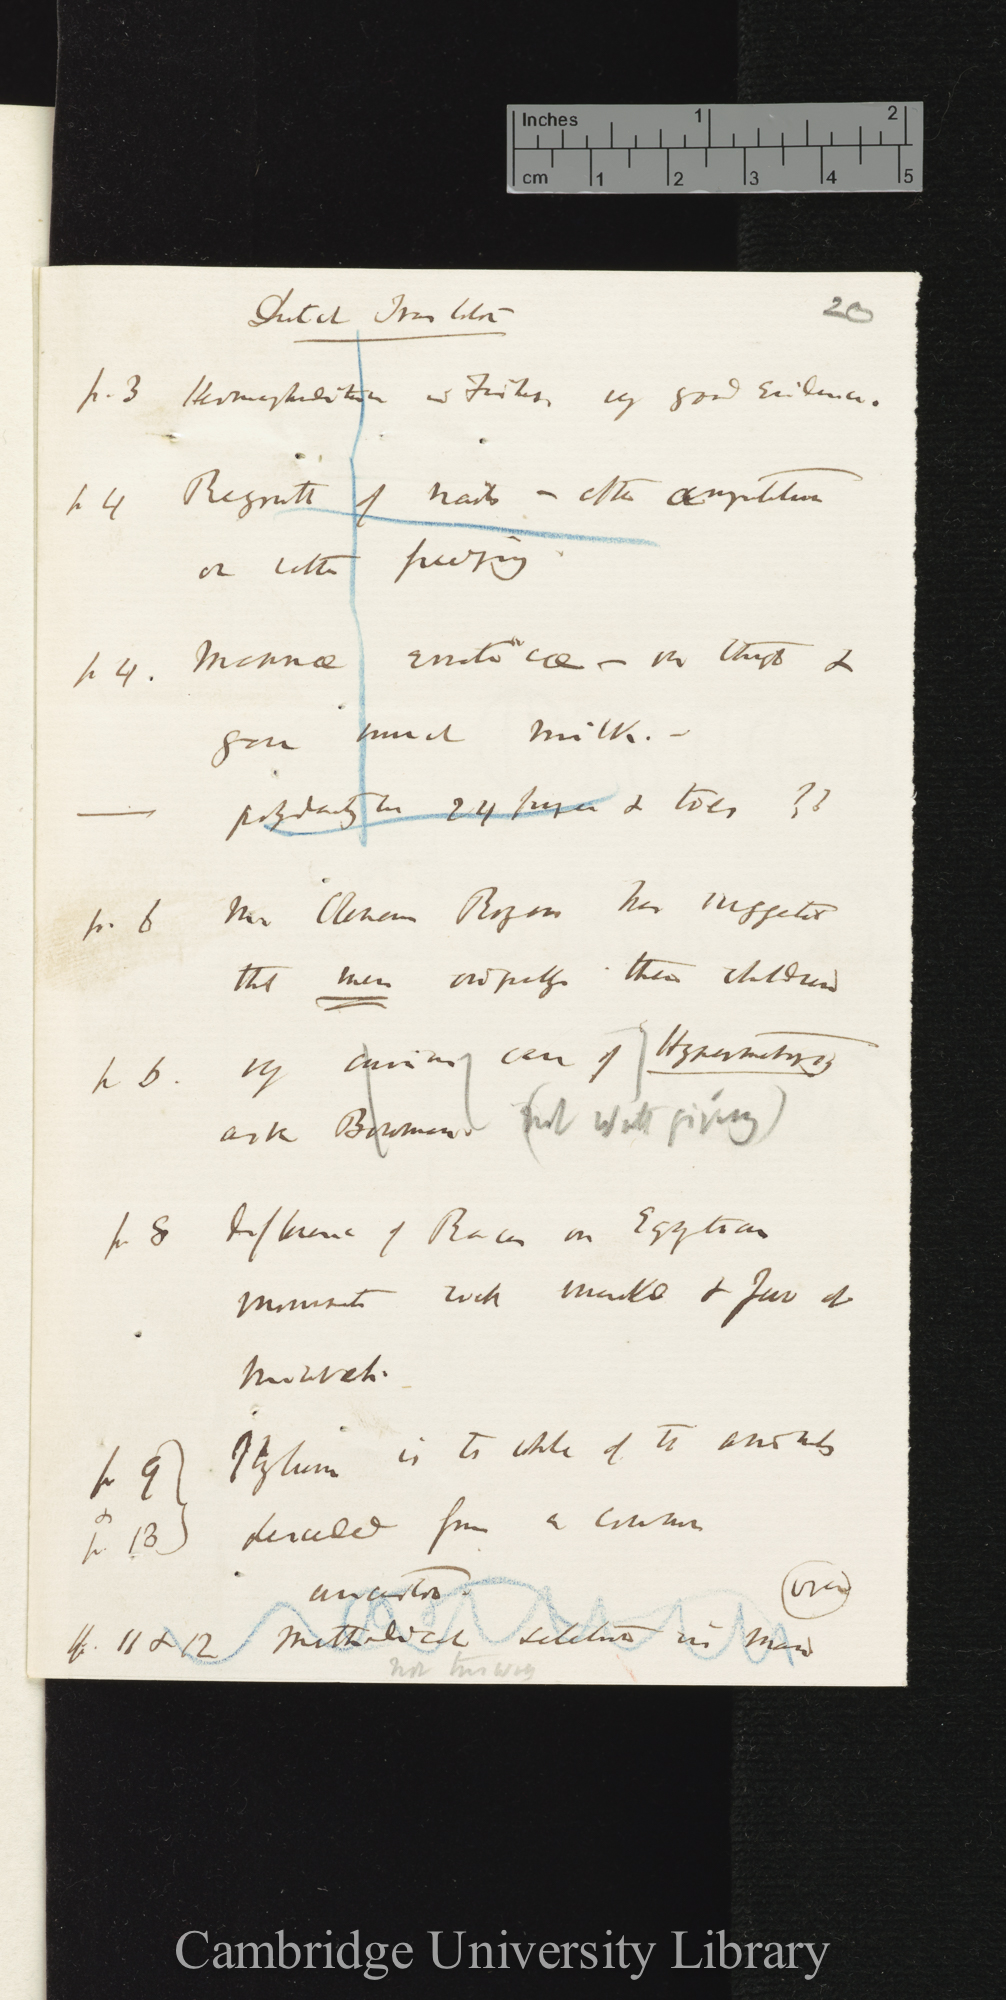 Inches 1 2
cm 1 2 3 4 5
20
Dutch Translator
p. 3 Hermaphroditism in Fishes vy good Evidence.
p 4 Regrowth of nails – after amputation
or after freezing
p 4. Mammæ erraticæ – on thigh &
gave much milk. –
— polydactylism 24 fingers & toes ??
p. 6 Mr Clemence Royer has suggested
that men originally their children
p 6. vy curious case of Hypermetropy
ask Bowman. (not worth giving)
p. 8 Difference of Races on Egyptian
monuments such marked & Jew of
Nineveh.
p 9 Pithecism is to whole of to animals
& p. 13 descended from a common
ancestor.
over
p. 11 & 12 Methodical selection in Man
not this way
Cambridge University Library